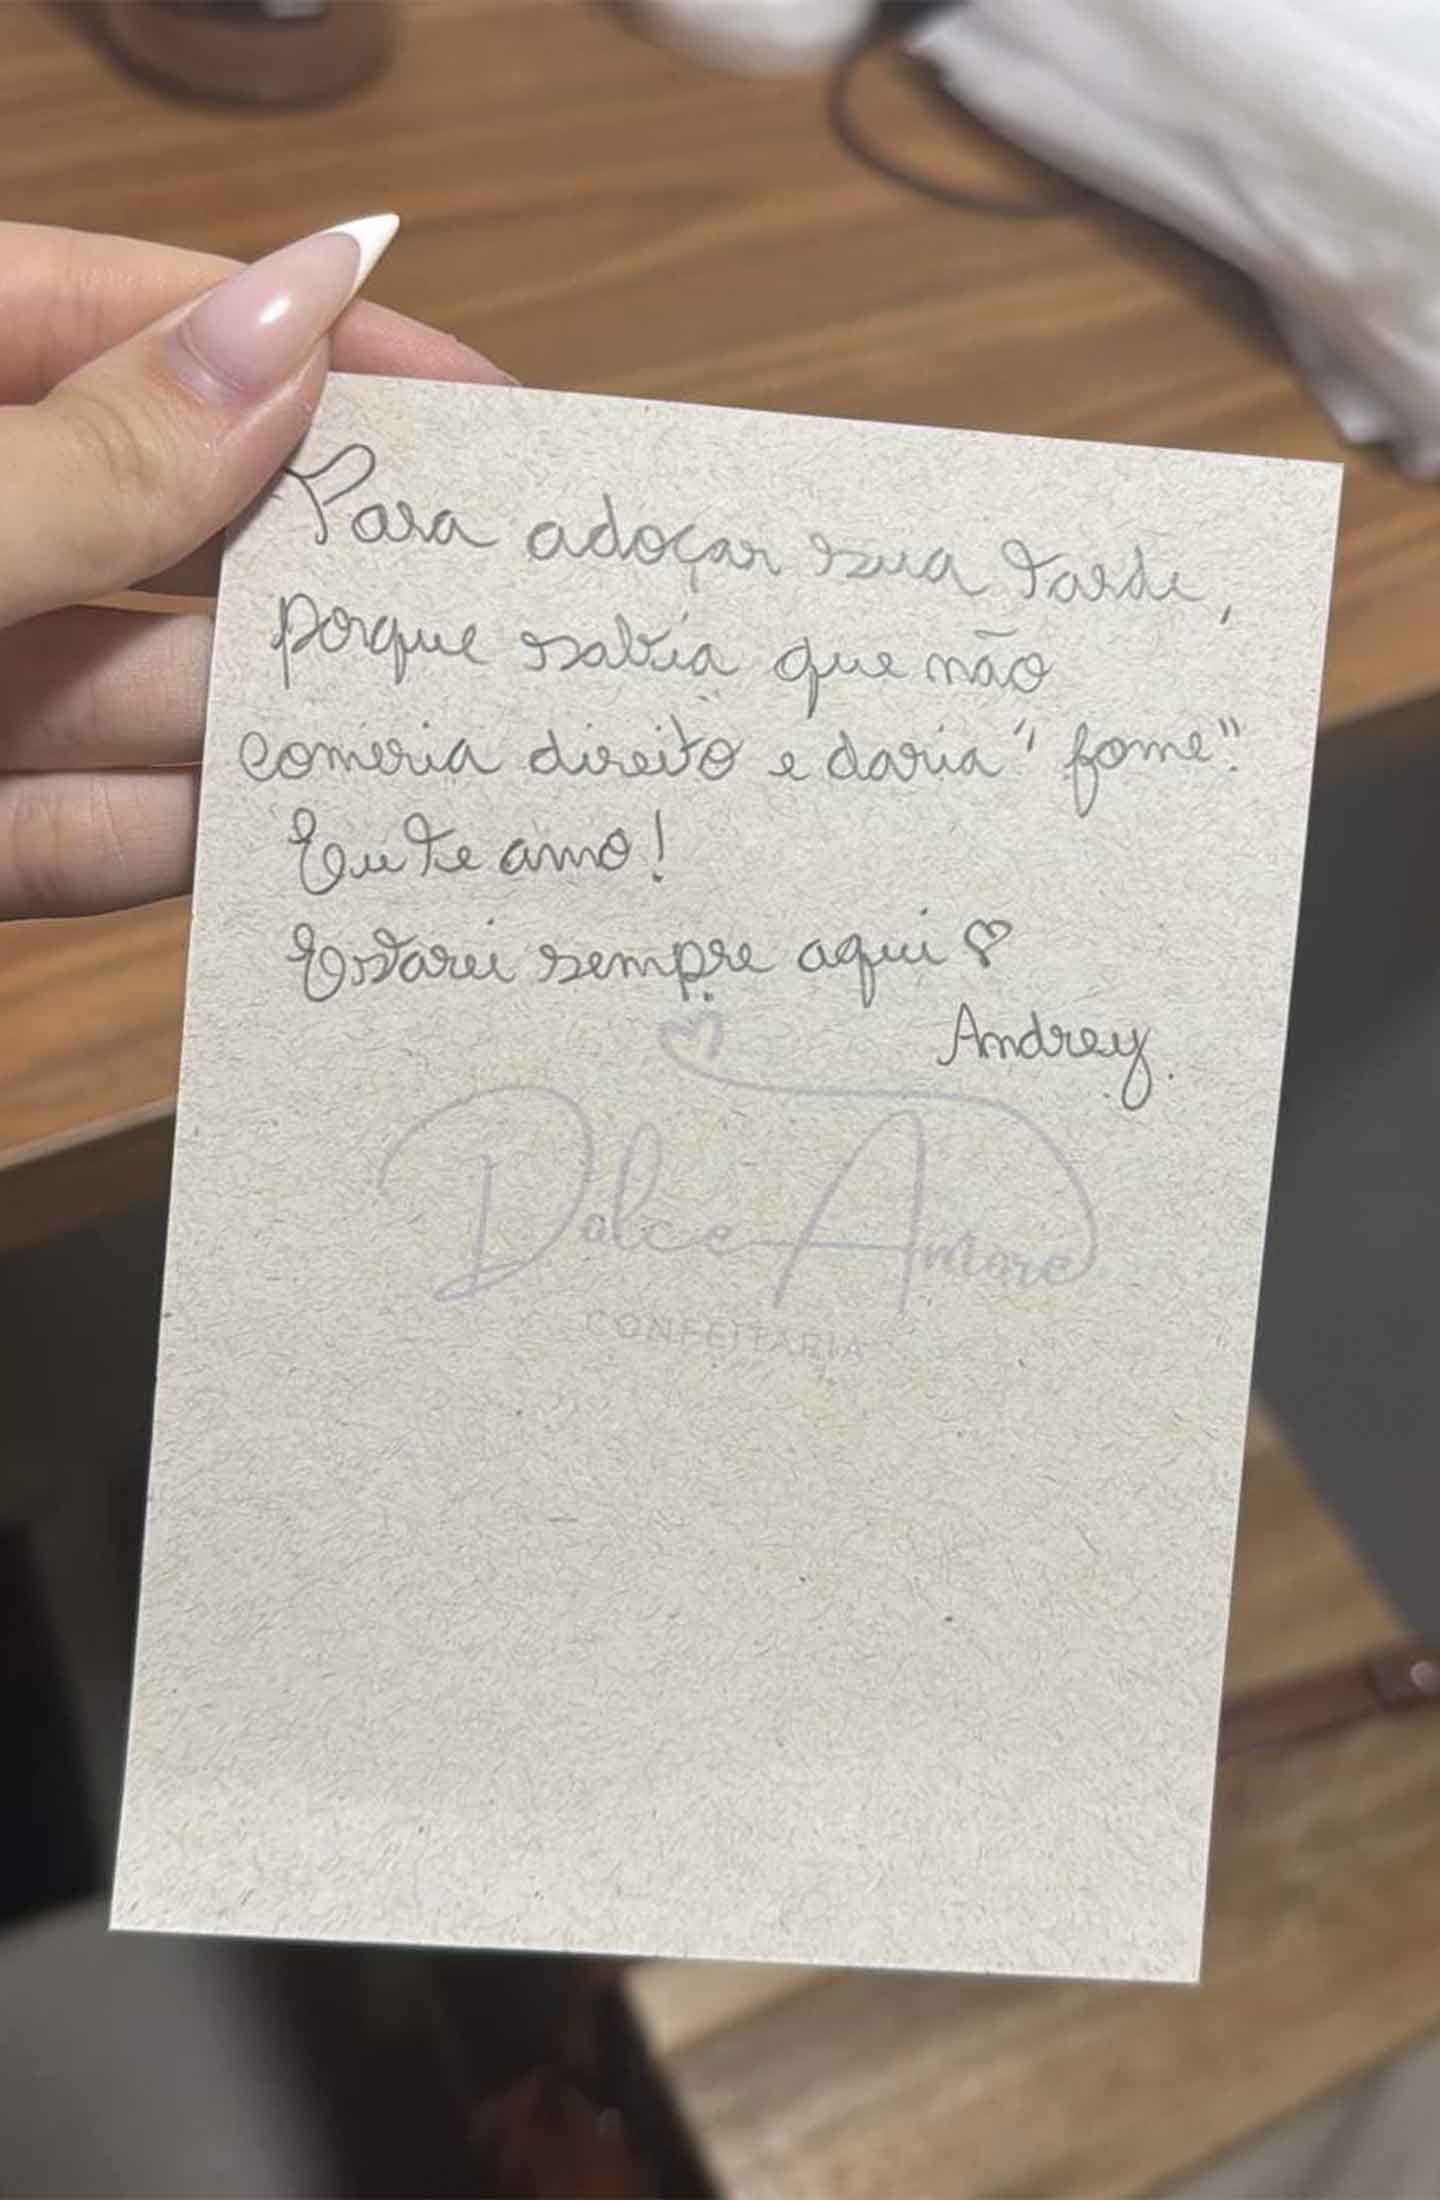 Para adoçar sua tarde,
porque sabia que não
comeria direito e daria "fome".
Eu te amo!
Estarei sempre aqui ♡
Andrey.
Dolce Amore
CONFEITARIA